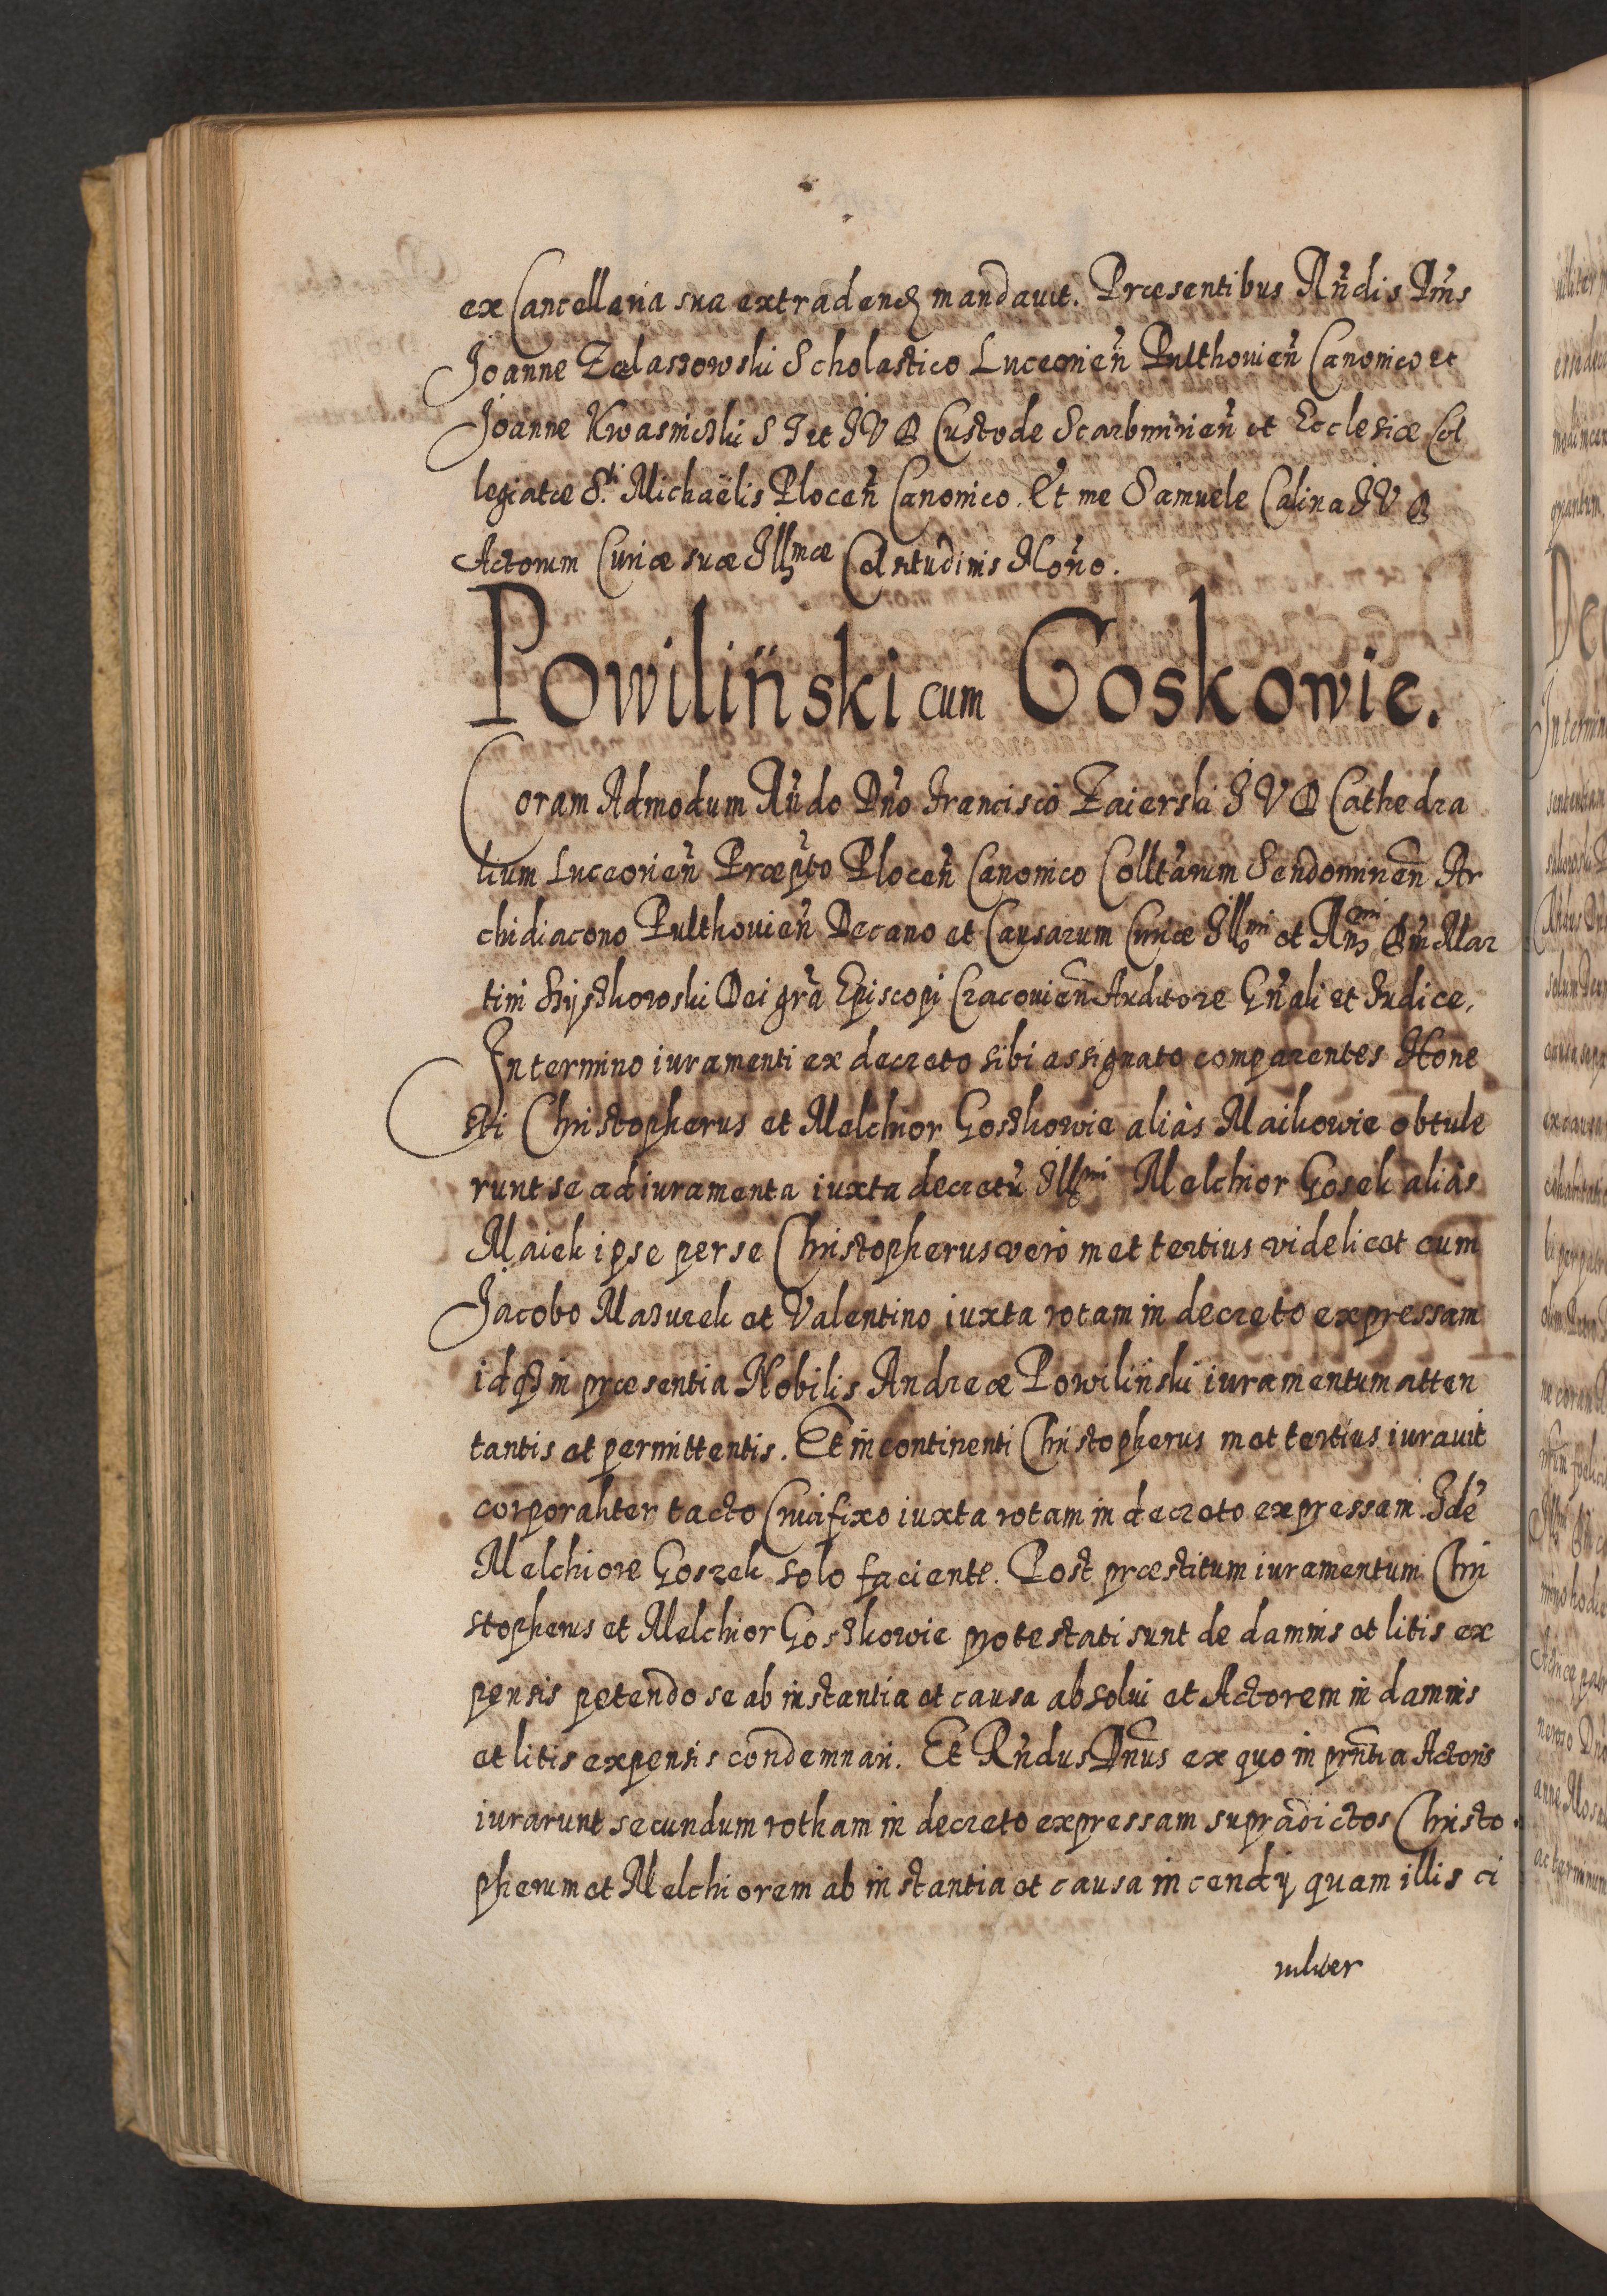 ex Cancellaria sua extradend mandavit. Præsentibus Rñdis Dñis
Joanne Zelaszowski Scholastico Luceorieñ Pulthovieñ Canonico et
Joanne Kwasniczki S T et J V D Custode Scarbmirieñ et Ecclesiæ Col
legiatæ S.ti Michaëlis Ploceñ Canonico. Et me Samuele Calina J V D
Actorum Curiæ suæ Illmæ Celsitudinis Noño.
Powilinski cum Goskowie.
Coram Admodum Rñdo Dño Francisco Zaierski J V D Cathedra
lium Luceorieñ Præpto Ploceñ Canonico Colltarum Sendomirieñ Ar
chidiacono Pulthovieñ Decano et Causarum Curiæ Illmi et Rmi Dñi Mar
tini Szyszkowski Dei grã Episcopi Cracovieñ Auditore Gñali et Iudice,
In termino iuramenti ex decreto sibi assignato comparentes Hone
sti Christopherus et Melchior Goszkowie aliàs Maikowie obtule
runt se ad iuramenta iuxta decretũ Illmi Melchior Gosek aliàs
Maiek ipse per se Christopherus verò met tertius videlicet cum
Jacobo Mazurek et Valentino iuxta rotam in decreto expressam
idq in præsentia Nobilis Andreæ Powilinski iuramentum atten
tantis et permittentis. Et incontinenti Christopherus met tertius iuravit
corporaliter tacto Crucifixo iuxta rotam in decreto expressam. Idẽ
Melchiore Goszek solo faciente. Post præstitum iuramentum Chri
stopherus et Melchior Goszkowie protestati sunt de damnis et litis ex
pensis petendo se ab instantia et causa absolui et Actorem in damnis
et litis expensis condemnari. Et Rñdus Dñus ex quo in prñtia Actoris
iurarunt secundum rotham in decreto expressam supradictos Christo
pherum et Melchiorem ab instantia et causa incendij quam illis ci